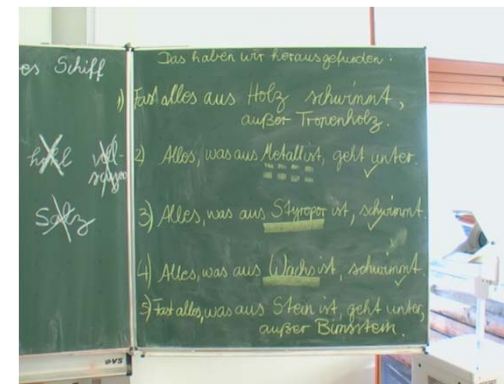 es Schiff
hohl voll-
saugen
Salz
Das haben wir herausgefunden:
1) Fast alles aus Holz schwimmt,
außer Tropenholz.
2) Alles, was aus Metall ist, geht unter.
3) Alles, was aus Styropor ist, schwimmt.
4) Alles, was aus Wachs ist, schwimmt.
5) Fast alles, was aus Stein ist, geht unter,
außer Bimsstein.